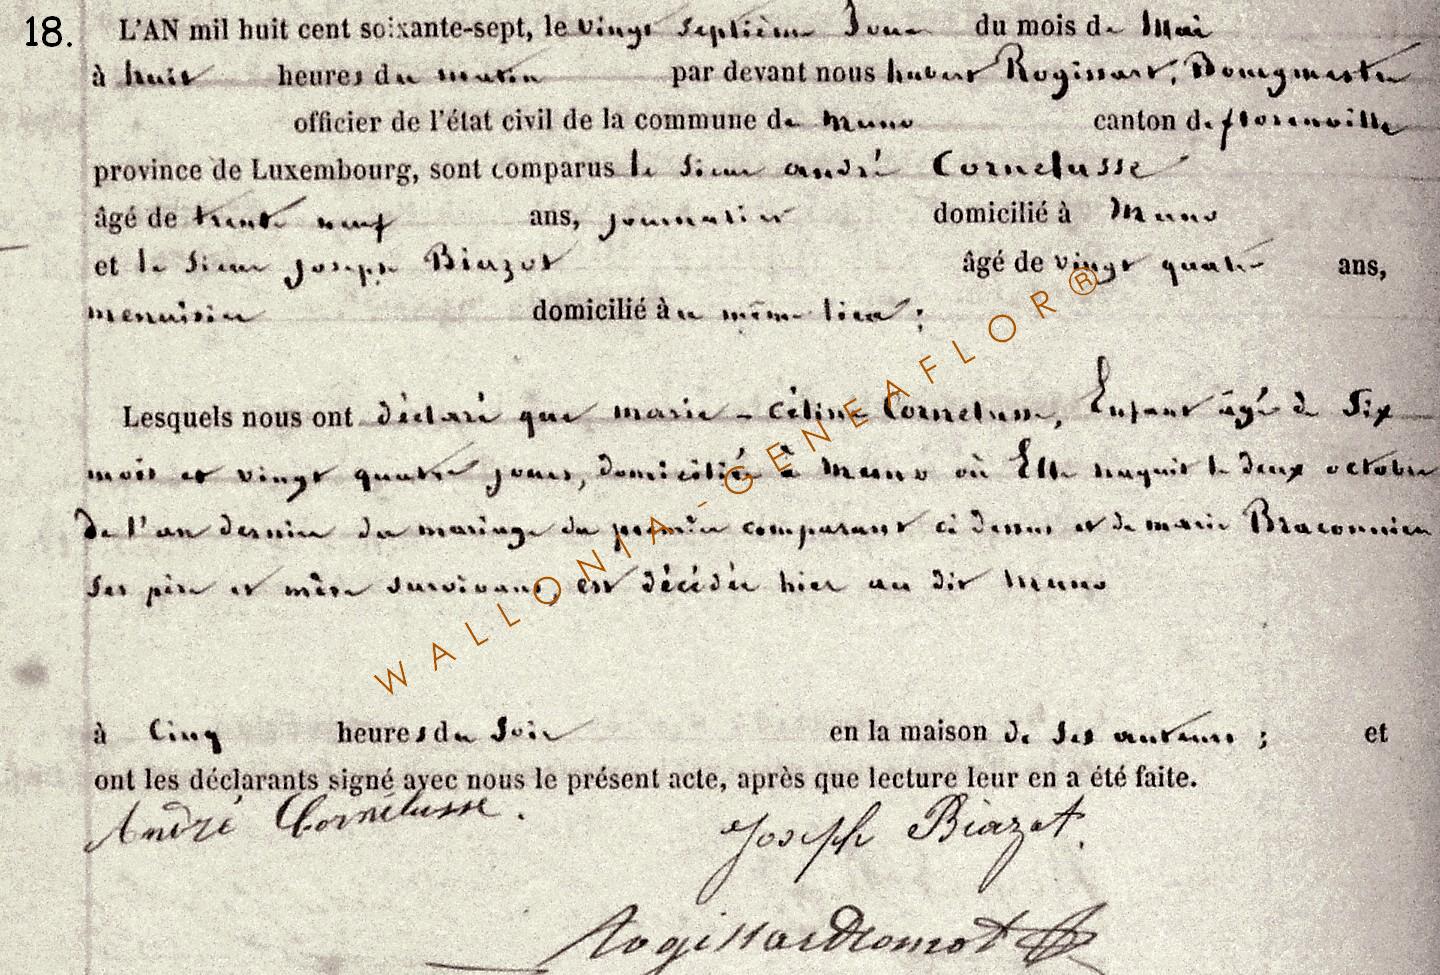 18. L'AN mil huit cent soixante-sept, le vingt septième Jour du mois de Mai
à huit heures du matin par devant nous hubert Rogissart, Bourgmestre
officier de l'état civil de la commune de Muno canton de florenville
province de Luxembourg, sont comparus le Sieur andré Cornelusse
âgé de trente neuf ans, journalier domicilié à Muno
et le Sieur joseph Biazot âgé de vingt quatre ans,
menuisier domicilié à u même lieu ;
Lesquels nous ont déclaré que marie - Céline Cornelusse, Enfant âgé de Six
mois et vingt quatre jours, domiciliée à Muno où Elle naquit le deux octobre
de l'an dernier du mariage du premier comparant ci dessus et de marie Braconnier
ses père et mère survivans, est décédée hier au dit Muno
à Cinq heures du Soir en la maison de ses auteurs ; et
ont les déclarants signé avec nous le présent acte, après que lecture leur en a été faite.
André Cornelusse. Joseph Biazot.
Rogissart
WALLONIA-GENEAFLOR®